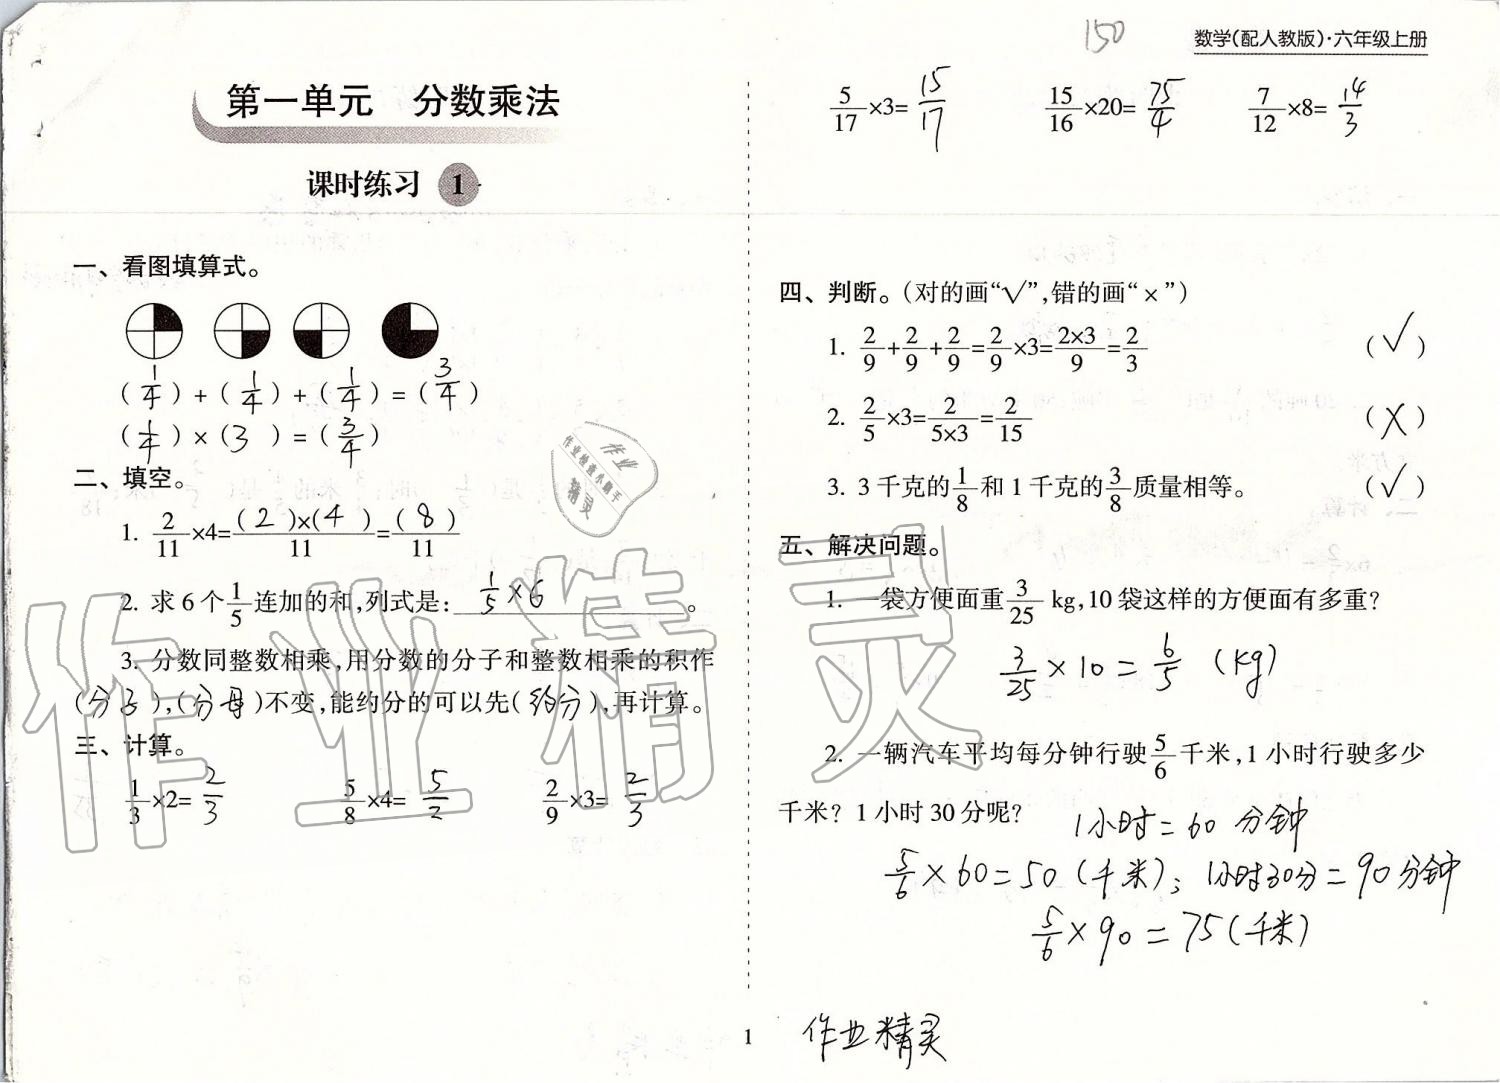 150
数学(配人教版)·六年级上册
第一单元 分数乘法
课时练习 1
一、看图填算式。
(1/4)+(1/4)+(1/4)=(3/4)
(1/4)×(3)=(3/4)
二、填空。
1. 2/11×4=(2)×(4)/11=(8)/11
2. 求6个1/5连加的和,列式是:1/5×6。
3. 分数同整数相乘,用分数的分子和整数相乘的积作
(分子),(分母)不变,能约分的可以先(约分),再计算。
三、计算。
1/3×2=2/3 5/8×4=5/2 2/9×3=2/3
5/17×3=15/17 15/16×20=75/4 7/12×8=14/3
四、判断。(对的画“√”,错的画“×”)
1. 2/9+2/9+2/9=2/9×3=2×3/9=2/3 (√)
2. 2/5×3=2/5×3=2/15 (×)
3. 3千克的1/8和1千克的3/8质量相等。 (√)
五、解决问题。
1. 一袋方便面重3/25 kg,10袋这样的方便面有多重?
3/25×10=6/5 (kg)
2. 一辆汽车平均每分钟行驶5/6千米,1小时行驶多少
千米? 1小时30分呢? 1小时=60分钟
5/6×60=50(千米); 1小时30分=90分钟
5/6×90=75(千米)
1
作业精灵
作业精灵
作业
作业检查小助手
精灵